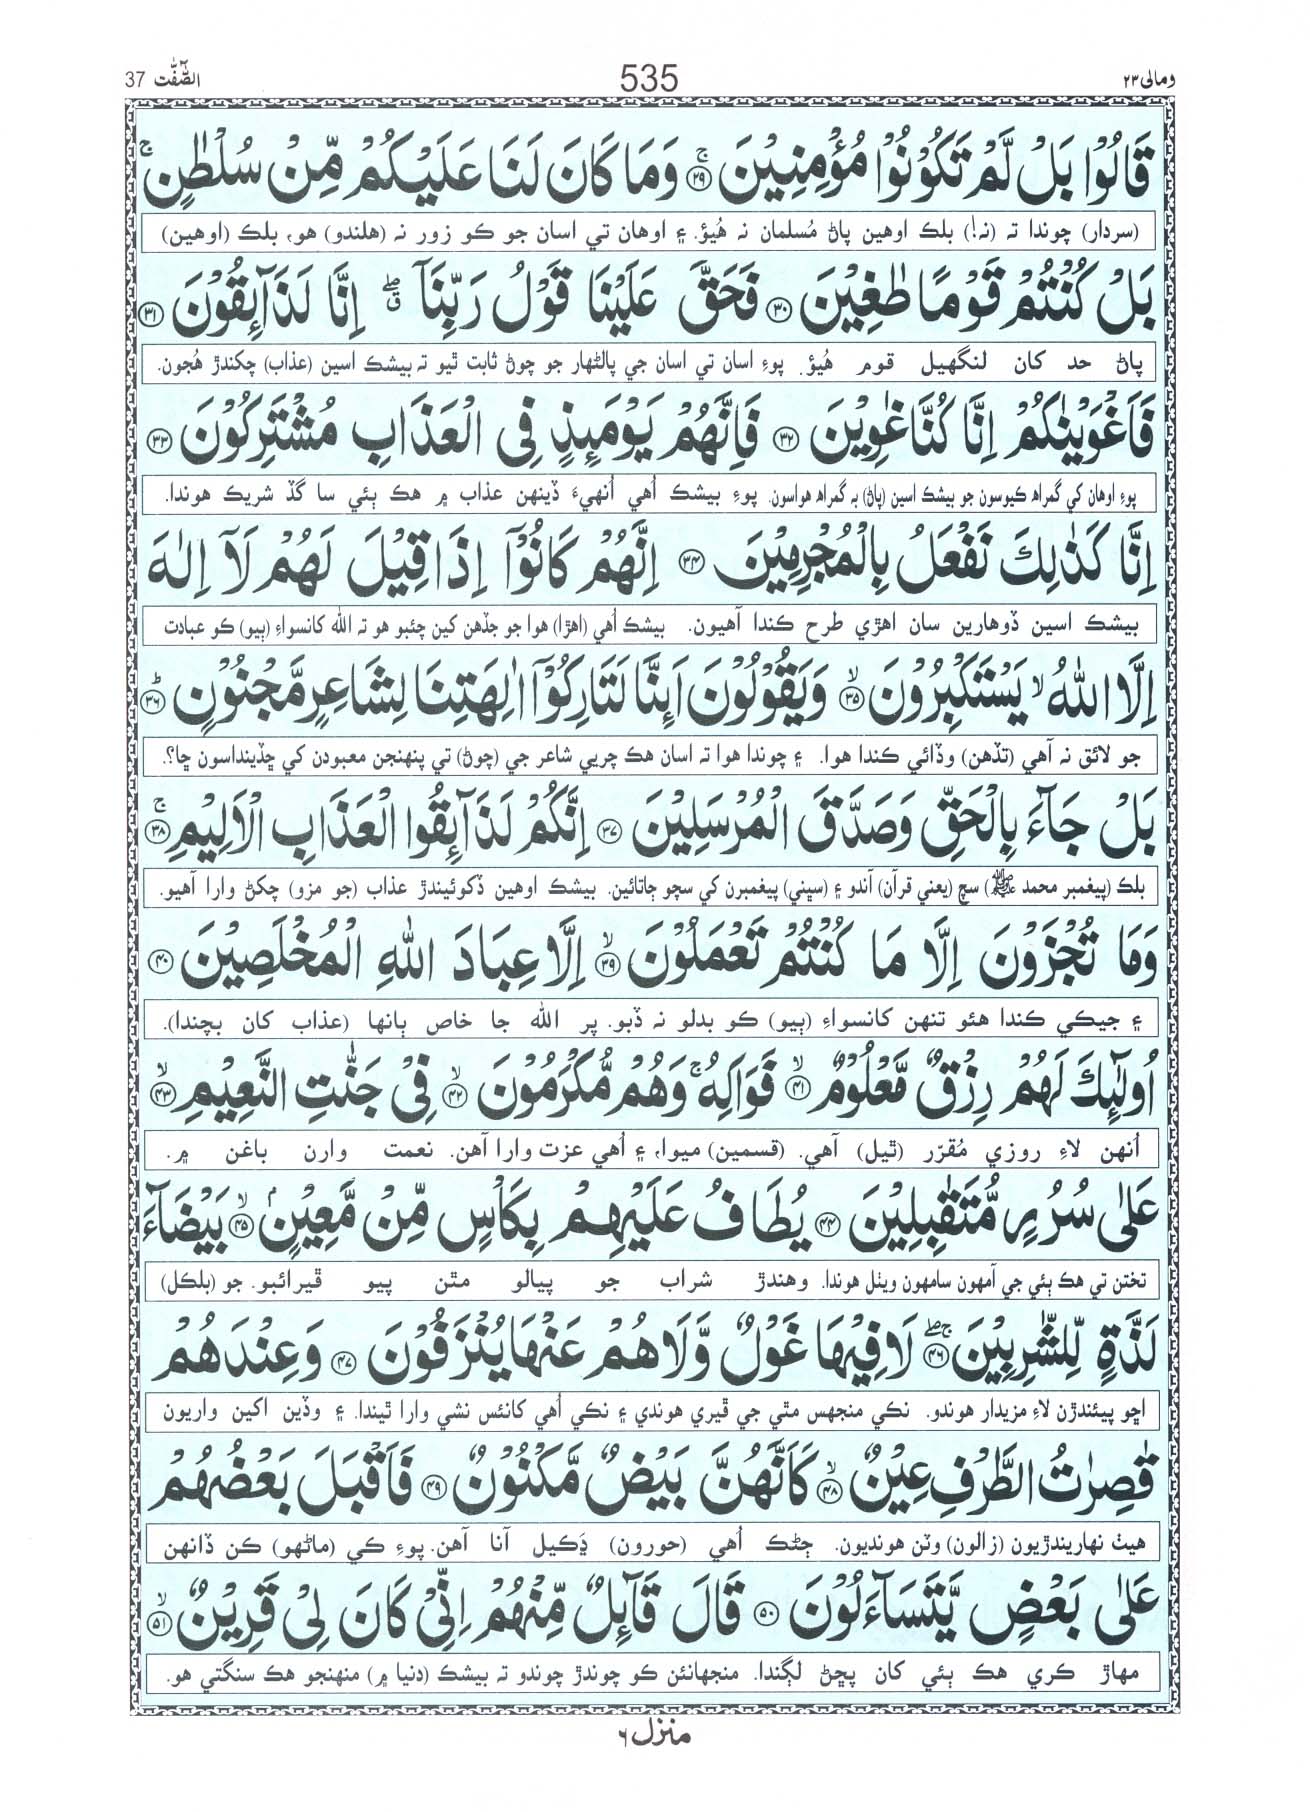 ومالى٢٣ 535 الصّٰٓفّٰت 37
قَالُوْا بَلْ لَّمْ تَكُوْنُوْا مُؤْمِنِيْنَ ۚ﴿٢٩﴾ وَمَا كَانَ لَنَا عَلَيْكُمْ مِّنْ سُلْطٰنٍ ۚ
(سردار) چوندا تہ (نہ!) بلڪ اوهين پاڻ مُسلمان نہ هُيؤ. ۽ اوهان تي اسان جو ڪو زور نہ (هلندو) هو، بلڪ (اوهين)
بَلْ كُنْتُمْ قَوْمًا طٰغِيْنَ ﴿٣٠﴾ فَحَقَّ عَلَيْنَا قَوْلُ رَبِّنَاۤ ۖۗ اِنَّا لَذَآئِقُوْنَ ﴿٣١﴾
پاڻ حد کان لنگهيل قوم هُيؤ. پوءِ اسان تي اسان جي پالڻهار جو چوڻ ثابت ٿيو تہ بيشڪ اسين (عذاب) چکندڙ هُجون.
فَاَغْوَيْنٰكُمْ اِنَّا كُنَّا غٰوِيْنَ ﴿٣٢﴾ فَاِنَّهُمْ يَوْمَئِذٍ فِى الْعَذَابِ مُشْتَرِكُوْنَ ﴿٣٣﴾
پوءِ اوهان کي گمراھ ڪيوسون جو بيشڪ اسين (پاڻ) بہ گمراھ هواسون. پوءِ بيشڪ اُهي اُنهيءَ ڏينهن عذاب ۾ هڪ ٻئي سا گڏ شريڪ هوندا.
اِنَّا كَذٰلِكَ نَفْعَلُ بِالْمُجْرِمِيْنَ ﴿٣٤﴾ اِنَّهُمْ كَانُوْۤا اِذَا قِيْلَ لَهُمْ لَاۤ اِلٰهَ
بيشڪ اسين ڏوهارين سان اهڙي طرح ڪندا آهيون. بيشڪ اُهي (اهڙا) هوا جو جڏهن کين چئبو هو تہ الله کانسواءِ (ٻيو) ڪو عبادت
اِلَّا اللّٰهُ ۙ يَسْتَكْبِرُوْنَ ۙ﴿٣٥﴾ وَيَقُوْلُوْنَ اَئِنَّا لَتَارِكُوْۤا اٰلِهَتِنَا لِشَاعِرٍ مَّجْنُوْنٍ ؕ﴿٣٦﴾
جو لائق نہ آهي (تڏهن) وڏائي ڪندا هوا. ۽ چوندا هوا تہ اسان هڪ چريي شاعر جي (چوڻ) تي پنهنجن معبودن کي ڇڏينداسون ڇا؟.
بَلْ جَآءَ بِالْحَقِّ وَصَدَّقَ الْمُرْسَلِيْنَ ﴿٣٧﴾ اِنَّكُمْ لَذَآئِقُوا الْعَذَابِ الْاَلِيْمِ ۚ﴿٣٨﴾
بلڪ (پيغمبر محمد ﷺ) سچ (يعني قرآن) آندو ۽ (سڀني) پيغمبرن کي سچو ڄاتائين. بيشڪ اوهين ڏکوئيندڙ عذاب (جو مزو) چکڻ وارا آهيو.
وَمَا تُجْزَوْنَ اِلَّا مَا كُنْتُمْ تَعْمَلُوْنَ ۙ﴿٣٩﴾ اِلَّا عِبَادَ اللّٰهِ الْمُخْلَصِيْنَ ﴿٤٠﴾
۽ جيڪي ڪندا هئو تنهن کانسواءِ (ٻيو) ڪو بدلو نہ ڏبو. پر الله جا خاص ٻانها (عذاب کان بچندا).
اُولٰٓئِكَ لَهُمْ رِزْقٌ مَّعْلُوْمٌ ۙ﴿٤١﴾ فَوَاكِهُ ۚ وَهُمْ مُّكْرَمُوْنَ ۙ﴿٤٢﴾ فِىْ جَنّٰتِ النَّعِيْمِ ۙ﴿٤٣﴾
اُنهن لاءِ روزي مُقرّر (ٿيل) آهي. (قسمين) ميوا، ۽ اُهي عزت وارا آهن. نعمت وارن باغن ۾.
عَلٰى سُرُرٍ مُّتَقٰبِلِيْنَ ﴿٤٤﴾ يُطَافُ عَلَيْهِمْ بِكَاْسٍ مِّنْ مَّعِيْنٍۭ ۙ﴿٤٥﴾ بَيْضَآءَ
تختن تي هڪ ٻئي جي آمهون سامهون ويٺل هوندا. وهندڙ شراب جو پيالو مٿن پيو ڦيرائبو. جو (بلڪل)
لَذَّةٍ لِّلشّٰرِبِيْنَ ۚۖ﴿٤٦﴾ لَا فِيْهَا غَوْلٌ وَّلَا هُمْ عَنْهَا يُنْزَفُوْنَ ﴿٤٧﴾ وَعِنْدَهُمْ
اڇو پيئندڙن لاءِ مزيدار هوندو. نڪي منجهس مٿي جي ڦيري هوندي ۽ نڪي اُهي کانئس نشي وارا ٿيندا. ۽ وڏين اکين واريون
قٰصِرٰتُ الطَّرْفِ عِيْنٌ ۙ﴿٤٨﴾ كَاَنَّهُنَّ بَيْضٌ مَّكْنُوْنٌ ﴿٤٩﴾ فَاَقْبَلَ بَعْضُهُمْ
هيٺ نهاريندڙيون (زالون) وٽن هونديون. ڄڻڪ اُهي (حورون) ڍَڪيل آنا آهن. پوءِ ڪي (ماڻهو) ڪن ڏانهن
عَلٰى بَعْضٍ يَّتَسَآءَلُوْنَ ﴿٥٠﴾ قَالَ قَآئِلٌ مِّنْهُمْ اِنِّىْ كَانَ لِىْ قَرِيْنٌ ۙ﴿٥١﴾
مهاڙ ڪري هڪ ٻئي کان پڇڻ لڳندا. منجهانئن ڪو چوندڙ چوندو تہ بيشڪ (دنيا ۾) منهنجو هڪ سنگتي هو.
منزل ٦